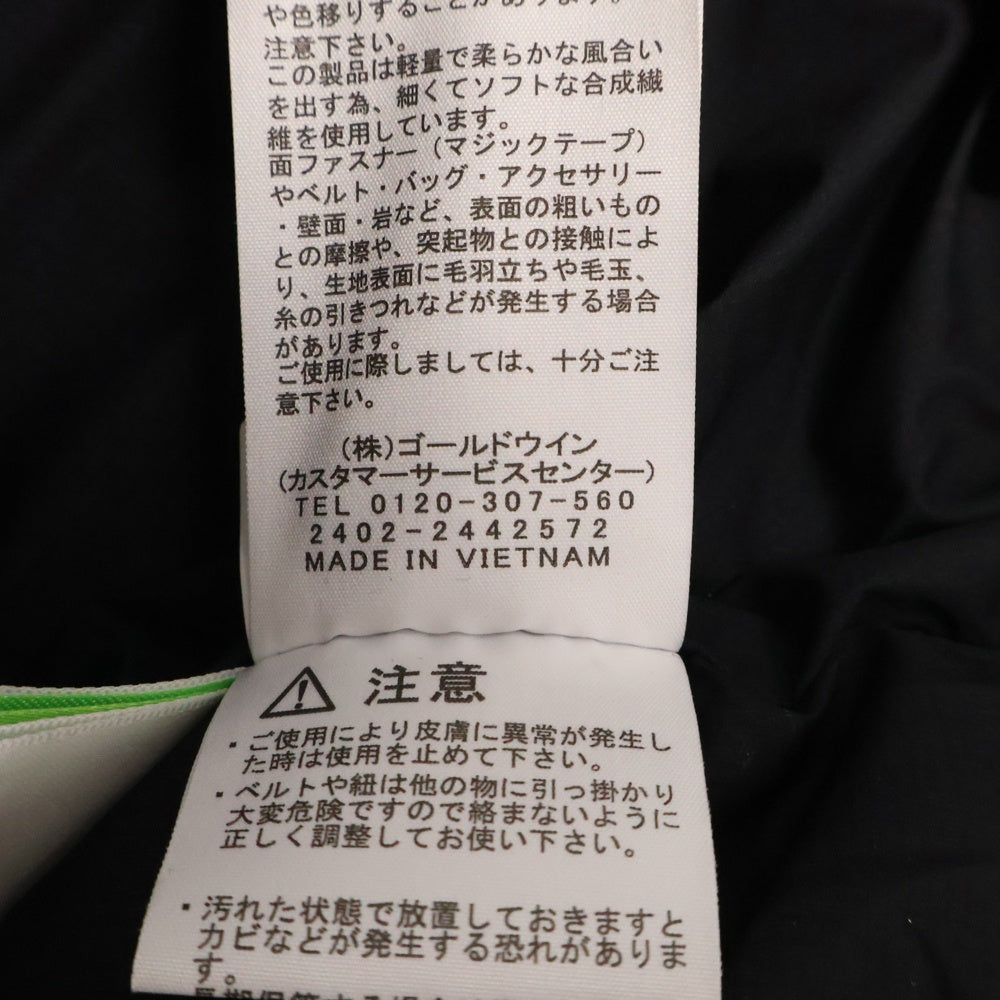 や色移りすることがあります。
注意下さい。
この製品は軽量で柔らかな風合い
を出す為、細くてソフトな合成繊
維を使用しています。
面ファスナー（マジックテープ）
やベルト・バッグ・アクセサリー
・壁面・岩など、表面の粗いもの
との摩擦や、突起物との接触によ
り、生地表面に毛羽立ちや毛玉、
糸の引きつれなどが発生する場合
があります。
ご使用に際しましては、十分ご注
意下さい。
（株）ゴールドウイン
（カスタマーサービスセンター）
TEL 0120-307-560
2402-2442572
MADE IN VIETNAM
注意
・ご使用により皮膚に異常が発生し
た時は使用を止めて下さい。
・ベルトや紐は他の物に引っ掛かり
大変危険ですので絡まないように
正しく調整してお使い下さい。
・汚れた状態で放置しておきますと
カビなどが発生する恐れがありま
す。